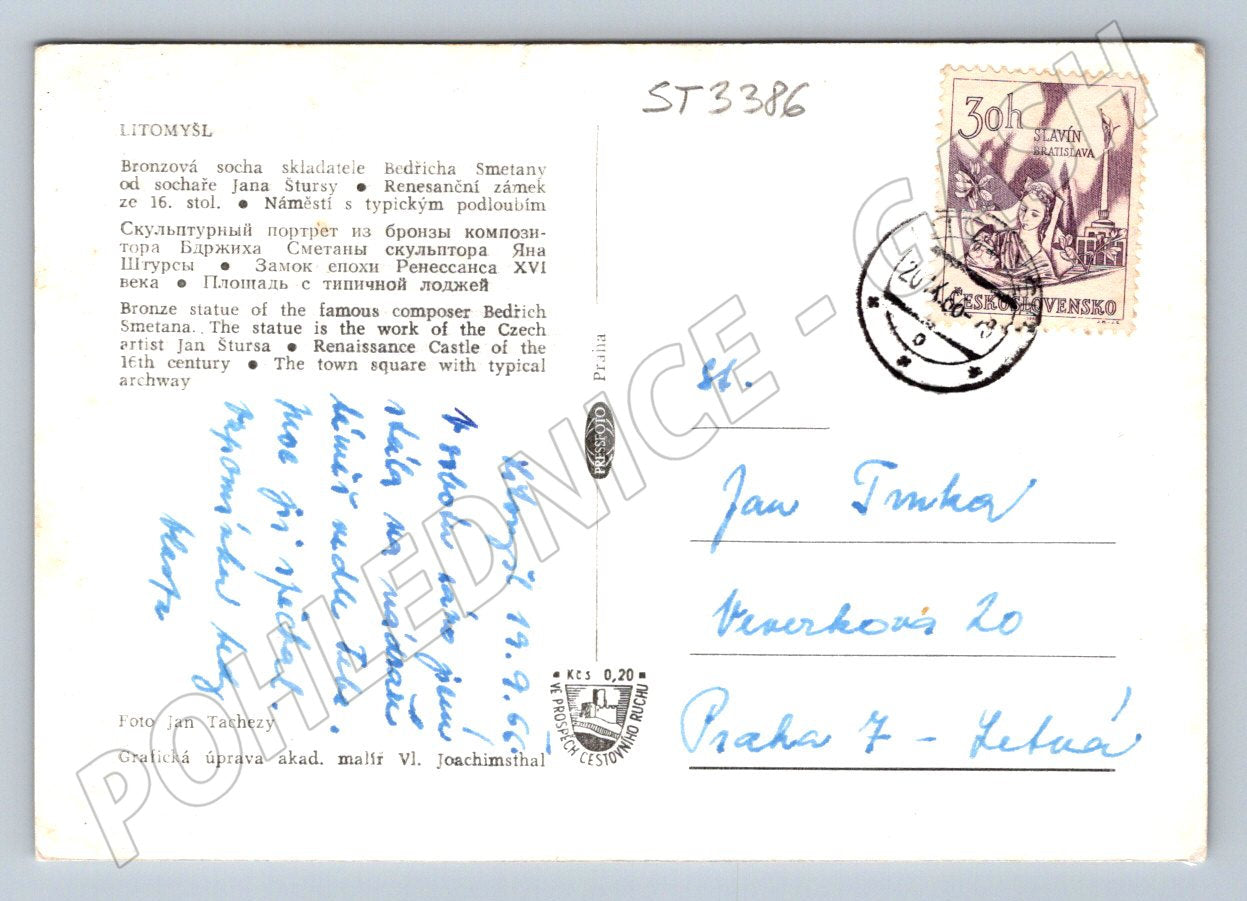 ST3386
LITOMYŠL
Bronzová socha skladatele Bedřicha Smetany
od sochaře Jana Štursy • Renesanční zámek
ze 16. stol. • Náměstí s typickým podloubím
Скульптурный портрет из бронзы компози-
тора Бдржиха Сметаны скульптора Яна
Штурсы • Замок епохи Ренессанса XVI
века • Площадь с типичной лоджей
Bronze statue of the famous composer Bedřich
Smetana. The statue is the work of the Czech
artist Jan Štursa • Renaissance Castle of the
16th century • The town square with typical
archway
Litomyšl 19. 9. 66
V sobotu ráno jsem
stála na nádraží
téměř vedle Tebe.
Moc jsi spěchal.
Vlasta
Foto Jan Tachezy
Grafická úprava akad. malíř Vl. Joachimsthal
Praha
PRESSFOTO
Kčs 0,20
VE PROSPĚCH CESTOVNÍHO RUCHU
30h
SLAVÍN
BRATISLAVA
ČESKOSLOVENSKO
Jan Trnka
Veverkova 20
Praha 7 - Letná
POHLEDNICE - G